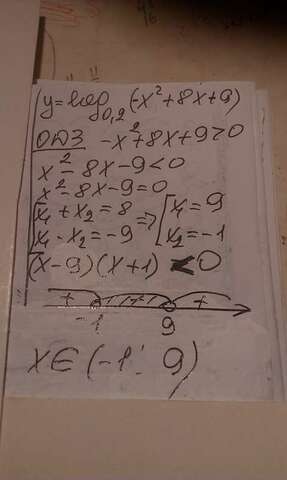 y=log₀,₂(-x²+8x+9)
ОДЗ -x²+8x+9>0
x²-8x-9<0
x²-8x-9=0
[x₁+x₂=8 => [x₁=9
[x₁·x₂=-9 [x₂=-1
(x-9)(x+1)<0
+ - +
-1 9
x∈(-1; 9)